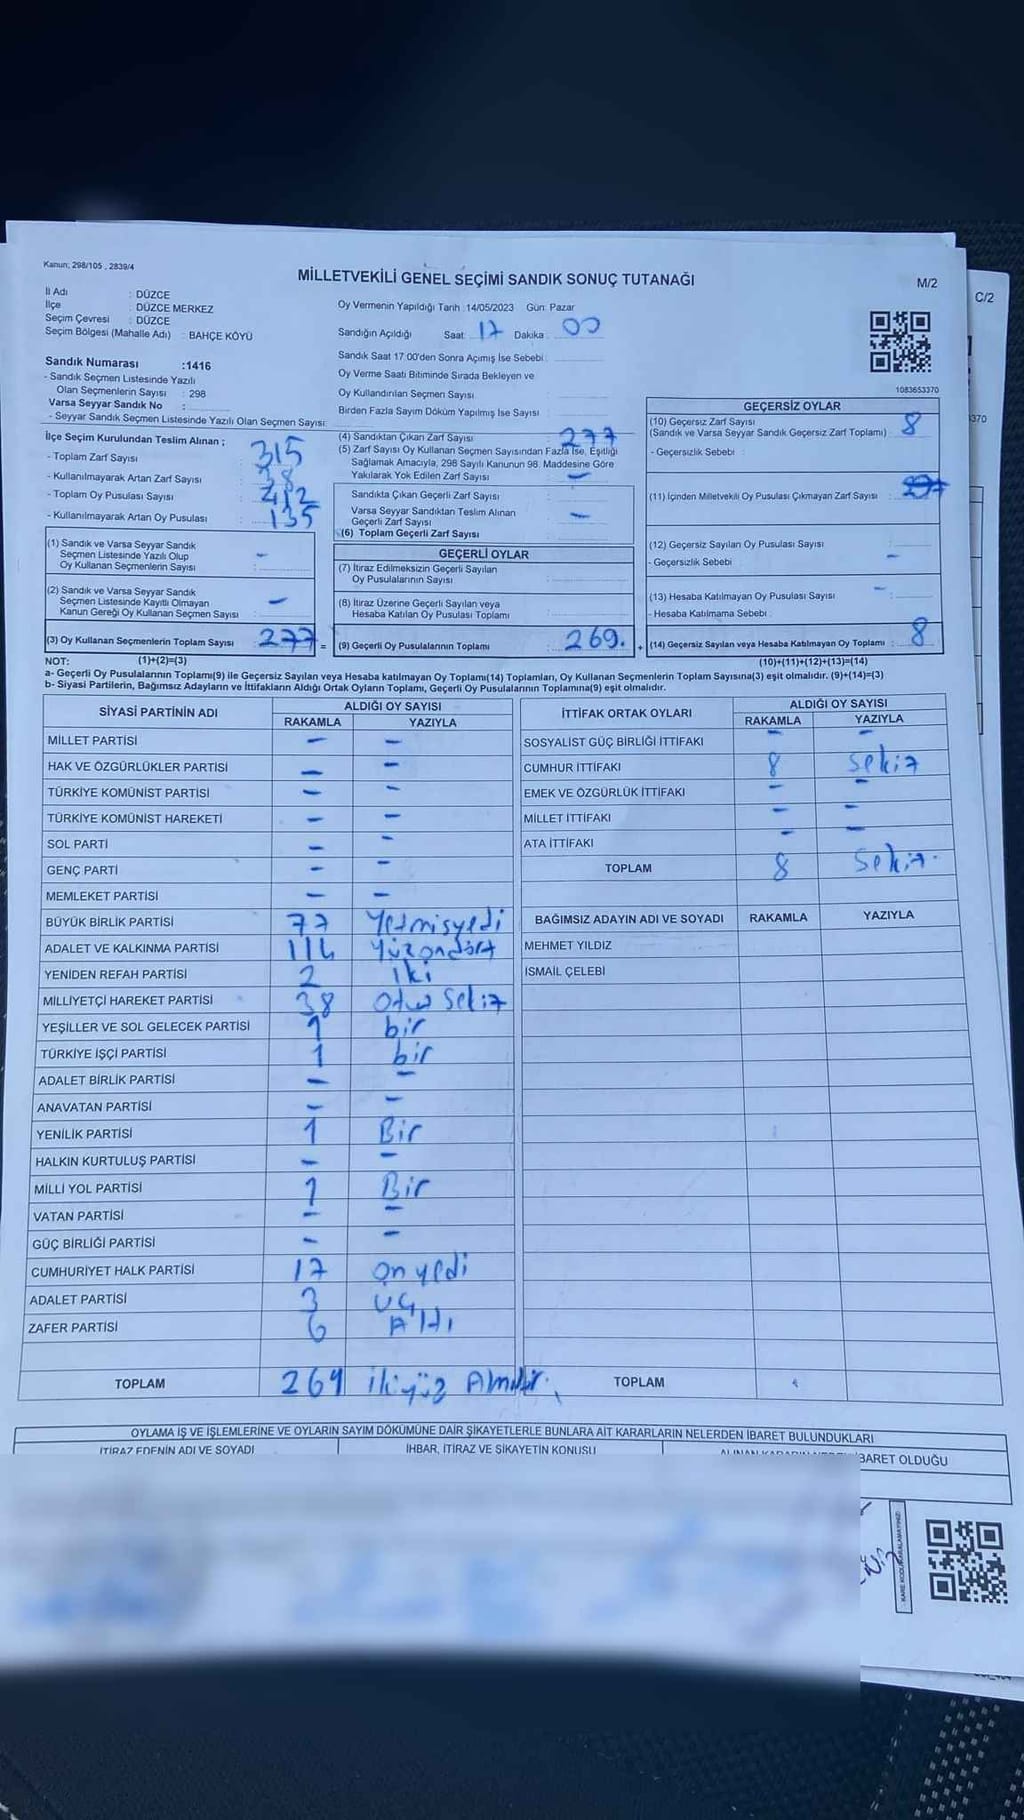 Kanun; 298/105 , 2839/4
MİLLETVEKİLİ GENEL SEÇİMİ SANDIK SONUÇ TUTANAĞI
M/2
C/2
İl Adı : DÜZCE
İlçe : DÜZCE MERKEZ
Seçim Çevresi : DÜZCE
Seçim Bölgesi (Mahalle Adı) : BAHÇE KÖYÜ
Oy Vermenin Yapıldığı Tarih :14/05/2023 Gün: Pazar
Sandığın Açıldığı Saat: 17 Dakika : 00
Sandık Saat 17.00'den Sonra Açımış İse Sebebi :
Oy Verme Saati Bitiminde Sırada Bekleyen ve
Oy Kullandırılan Seçmen Sayısı
Birden Fazla Sayım Döküm Yapılmış İse Sayısı :
Sandık Numarası :1416
- Sandık Seçmen Listesinde Yazılı
Olan Seçmenlerin Sayısı : 298
Varsa Seyyar Sandık No :
- Seyyar Sandık Seçmen Listesinde Yazılı Olan Seçmen Sayısı:
1083653370
370
İlçe Seçim Kurulundan Teslim Alınan ;
- Toplam Zarf Sayısı : 315
- Kullanılmayarak Artan Zarf Sayısı : 38
- Toplam Oy Pusulası Sayısı : 412
- Kullanılmayarak Artan Oy Pusulası : 135
(1) Sandık ve Varsa Seyyar Sandık
Seçmen Listesinde Yazılı Olup
Oy Kullanan Seçmenlerin Sayısı : -
(2) Sandık ve Varsa Seyyar Sandık
Seçmen Listesinde Kayıtlı Olmayan
Kanun Gereği Oy Kullanan Seçmen Sayısı : -
(3) Oy Kullanan Seçmenlerin Toplam Sayısı : 277 =
(4) Sandıktan Çıkan Zarf Sayısı : 277
(5) Zarf Sayısı Oy Kullanan Seçmen Sayısından Fazla İse, Eşitliği
Sağlamak Amacıyla, 298 Sayılı Kanunun 98. Maddesine Göre
Yakılarak Yok Edilen Zarf Sayısı : -
Sandıkta Çıkan Geçerli Zarf Sayısı :
Varsa Seyyar Sandıktan Teslim Alınan
Geçerli Zarf Sayısı : -
(6) Toplam Geçerli Zarf Sayısı :
GEÇERLİ OYLAR
(7) İtiraz Edilmeksizin Geçerli Sayılan
Oy Pusulalarının Sayısı :
(8) İtiraz Üzerine Geçerli Sayılan veya
Hesaba Katılan Oy Pusulası Toplamı :
(9) Geçerli Oy Pusulalarının Toplamı : 269. +
GEÇERSİZ OYLAR
(10) Geçersiz Zarf Sayısı
(Sandık ve Varsa Seyyar Sandık Geçersiz Zarf Toplamı) : 8
- Geçersizlik Sebebi :
(11) İçinden Milletvekili Oy Pusulası Çıkmayan Zarf Sayısı :
(12) Geçersiz Sayılan Oy Pusulası Sayısı :
- Geçersizlik Sebebi : -
(13) Hesaba Katılmayan Oy Pusulası Sayısı : -
- Hesaba Katılmama Sebebi :
(14) Geçersiz Sayılan veya Hesaba Katılmayan Oy Toplamı : 8
NOT: (1)+(2)=(3) (10)+(11)+(12)+(13)=(14)
a- Geçerli Oy Pusulalarının Toplamı(9) ile Geçersiz Sayılan veya Hesaba Katılmayan Oy Toplamı(14) Toplamları, Oy Kullanan Seçmenlerin Toplam Sayısına(3) eşit olmalıdır. (9)+(14)=(3)
b- Siyasi Partilerin, Bağımsız Adayların ve İttifakların Aldığı Ortak Oyların Toplamı, Geçerli Oy Pusulalarının Toplamına(9) eşit olmalıdır.
SİYASİ PARTİNİN ADI ALDIĞI OY SAYISI
RAKAMLA YAZIYLA
MİLLET PARTİSİ - -
HAK VE ÖZGÜRLÜKLER PARTİSİ - -
TÜRKİYE KOMÜNİST PARTİSİ - -
TÜRKİYE KOMÜNİST HAREKETİ - -
SOL PARTİ - -
GENÇ PARTİ - -
MEMLEKET PARTİSİ - -
BÜYÜK BİRLİK PARTİSİ 77 Yetmişyedi
ADALET VE KALKINMA PARTİSİ 114 Yüzondört
YENİDEN REFAH PARTİSİ 2 İki
MİLLİYETÇİ HAREKET PARTİSİ 38 Otuz Sekiz
YEŞİLLER VE SOL GELECEK PARTİSİ 1 bir
TÜRKİYE İŞÇİ PARTİSİ 1 bir
ADALET BİRLİK PARTİSİ - -
ANAVATAN PARTİSİ - -
YENİLİK PARTİSİ 1 Bir
HALKIN KURTULUŞ PARTİSİ - -
MİLLİ YOL PARTİSİ 1 Bir
VATAN PARTİSİ - -
GÜÇ BİRLİĞİ PARTİSİ - -
CUMHURİYET HALK PARTİSİ 17 on yedi
ADALET PARTİSİ 3 üç
ZAFER PARTİSİ 6 Altı
TOPLAM 269 ikiyüz
İTTİFAK ORTAK OYLARI ALDIĞI OY SAYISI
RAKAMLA YAZIYLA
SOSYALİST GÜÇ BİRLİĞİ İTTİFAKI - -
CUMHUR İTTİFAKI 8 sekiz
EMEK VE ÖZGÜRLÜK İTTİFAKI - -
MİLLET İTTİFAKI - -
ATA İTTİFAKI - -
TOPLAM 8 Sekiz.
BAĞIMSIZ ADAYIN ADI VE SOYADI RAKAMLA YAZIYLA
MEHMET YILDIZ
İSMAİL ÇELEBİ
TOPLAM
OYLAMA İŞ VE İŞLEMLERİNE VE OYLARIN SAYIM DÖKÜMÜNE DAİR ŞİKAYETLERLE BUNLARA AİT KARARLARIN NELERDEN İBARET BULUNDUKLARI
İTİRAZ EDENİN ADI VE SOYADI İHBAR, İTİRAZ VE ŞİKAYETİN KONUSU
BARET OLDUĞU